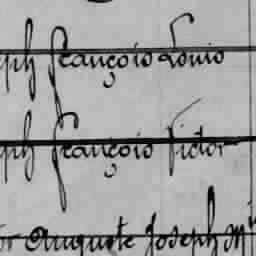 ph françois Louis
ph françois Victor
or Auguste Joseph M